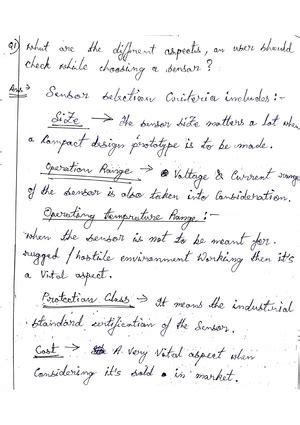 Q1) What are the different aspects, an user should
check while choosing a sensor?
Ans:→ Sensor selection Criteria includes:-
Size → The sensor size matters a lot when
a Compact design prototype is to be made.
Operation Range → Voltage & Current range
of the sensor is also taken into Consideration.
Operating Temprature Range:-
When the sensor is not to be meant for
rugged / hostile environment Working then it's
a Vital aspect.
Protection Class → It means the industrial
standard certification of the Sensor.
Cost → A Very Vital aspect when
Considering it's sold in market.